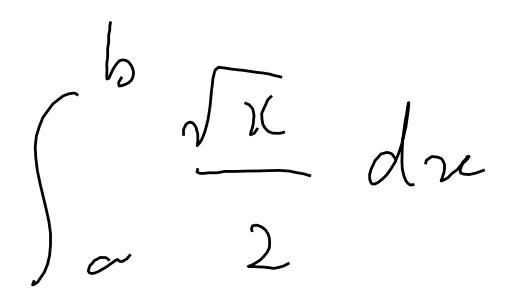 \int_a^b \frac{\sqrt{x}}{2} dx